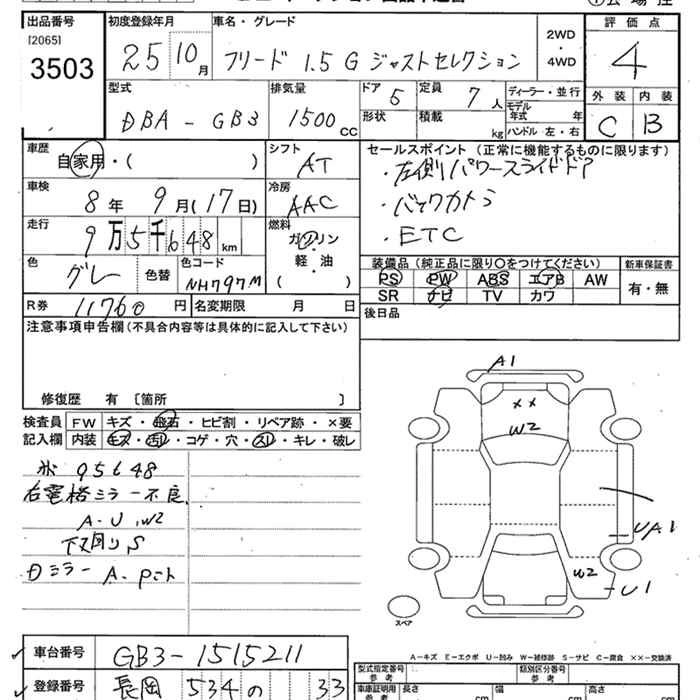 出品番号 初度登録年月 車名・グレード 評価点
[2065]
3503 25 10月 フリード 1.5 G ジャストセレクション 2WD・4WD 4
型式 排気量 ドア 5 定員 7人 ディーラー・並行 外装 内装
DBA-GB3 1500cc 形状 積載 kg モデル年式 年 C B
ハンドル 左・右
車歴 自家用・( ) シフト AT セールスポイント (正常に機能するものに限ります)
・左側パワースライドドア
車検 8年 9月(17日) 冷房 AAC ・バックカメラ
走行 9万5千648km 燃料 ガソリン・軽・油 ( ) ・ETC
色 グレー 色替 色コード NH797M 装備品 (純正品に限り○をつけてください) 新車保証書
PS PW ABS エアB AW 有・無
R券 11760円 名変期限 月 日 SR ナビ TV カワ
注意事項申告欄(不具合内容等は具体的に記入して下さい) 後日品
修復歴 有 [箇所 ]
検査員 FW キズ・飛石・ヒビ割・リペア跡・×要
記入欄 内装 キズ・汚レ・コゲ・穴・スレ・キレ・破レ
A1
××
W2
UA1
W2
U1
スペア
95648
右電格ミラー不良
A-U, W2
下回りS
Dミラー A.
A-キズ E-エクボ U-凹み W-補修跡 S-サビ C-腐食 ××-交換済
車台番号 GB3-1515211 型式指定番号 参考 類別区分番号 参考
登録番号 長岡 534 の 33 車庫証明用 参考 長さ cm 幅 cm 高さ cm